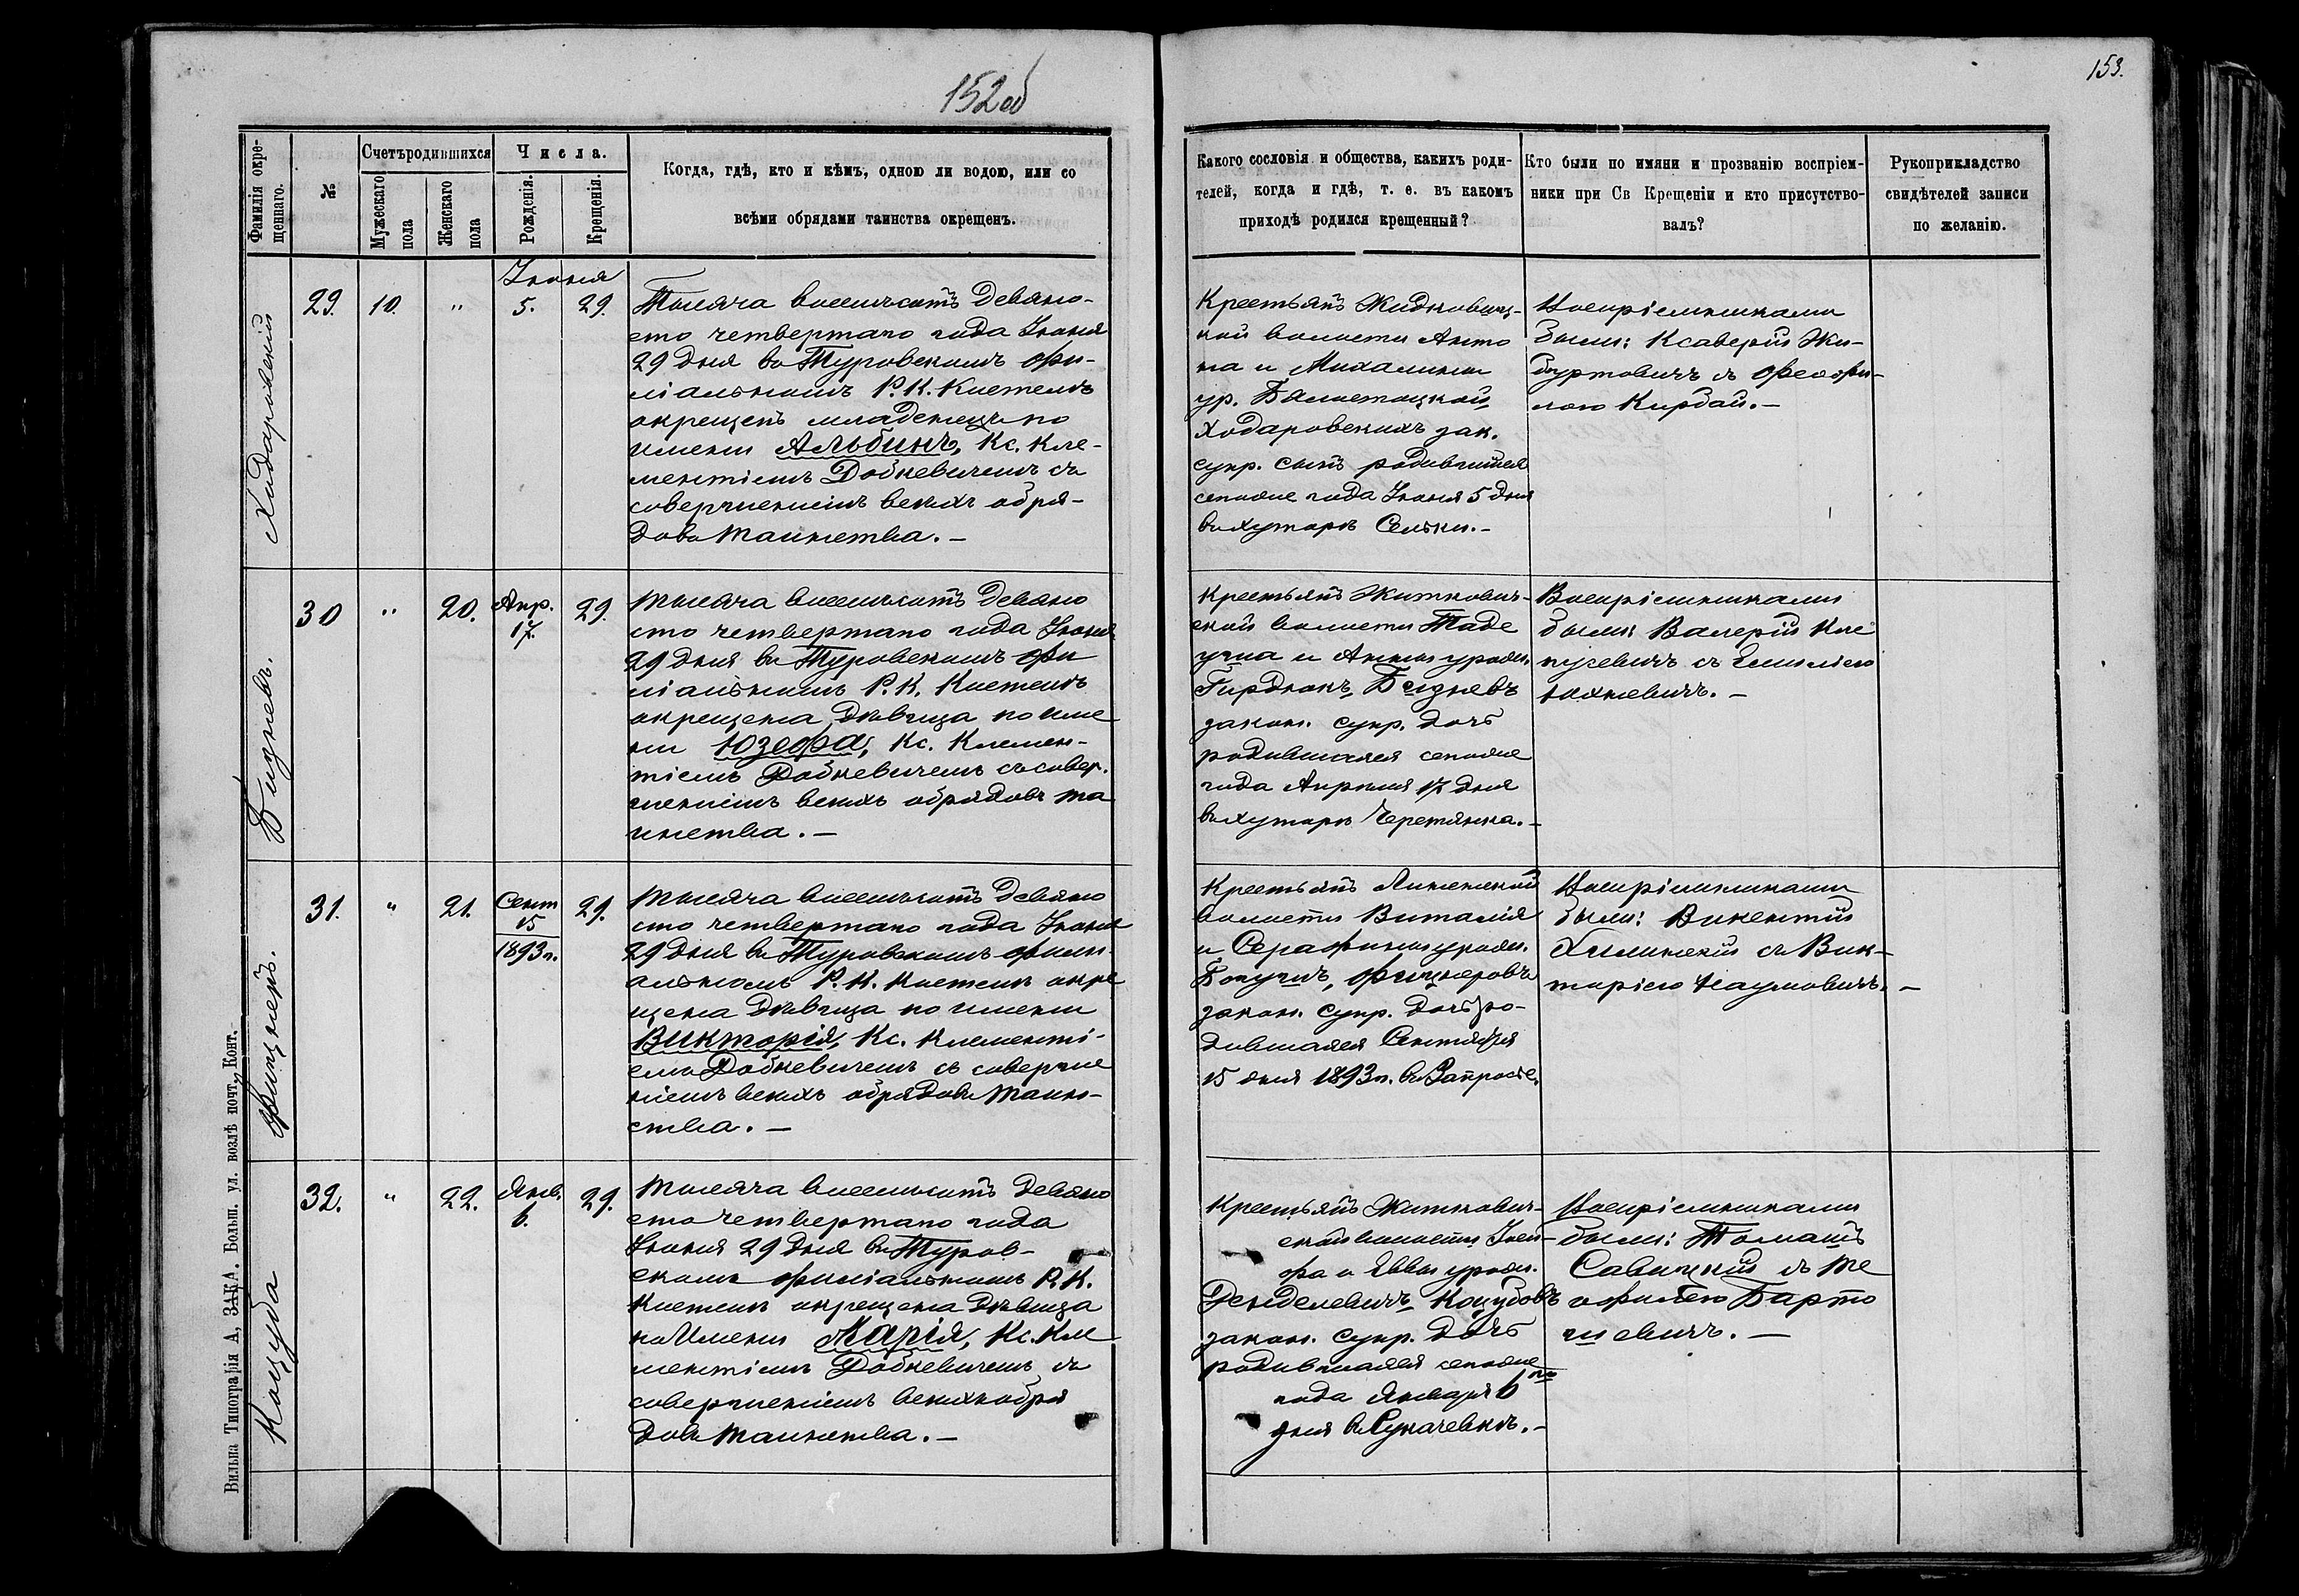 152 об
153.
Фамилія окре-
щеннаго.
№
Счетъ родившихся
Мужескаго
пола
Женскаго
пола
Числа.
Рожденія.
Крещенія.
Когда, гдѣ, кто и кѣмъ, одною ли водою, или со
всѣми обрядами таинства окрещенъ.
Какого сословія и общества, какихъ роди-
телей, когда и гдѣ, т. е. въ какомъ
приходѣ родился крещенный?
Кто были по имяни и прозванію воспріем-
ники при Св Крещеніи и кто присутство-
валъ?
Рукоприкладство
свидѣтелей записи
по желанію.
Ходаровскій
29.
10.
"
Іюня
5.
29.
Тысяча восемьсотъ девяно-
сто четвертаго года Іюня
29 дня въ Туровскомъ фи-
ліальномъ Р. К. Костелѣ
окрещенъ младенецъ по
имени Альбинъ, Кс. Кле-
ментіемъ Добкевичемъ съ
совершеніемъ всѣхъ обря-
довъ таинства. —
Крестьянъ Жидковиц-
кой волости Анто
на и Михалины
ур. Бялостоцкой
Ходаровскихъ зак.
супр. сынъ родившійся
сегоже года Іюня 5 дня
въ хуторѣ Сельки. —
Воспріемниками
были: Ксаверій Жи-
буртовичъ съ Феофи-
лою Кирбай. —
Бизневъ.
30
"
20.
Апр.
17.
29.
Тысяча восемьсотъ девяно
сто четвертаго года Іюня
29 дня въ Туровскомъ фи
ліальномъ Р. К. Костелѣ
окрещена дѣвица по име
ни Юзефа, Кс. Клемен-
тіемъ Добкевичемъ съ совер-
шеніемъ всѣхъ обрядовъ та
инства. —
Крестьянъ Житкович-
ской волости Таде
уша и Анны урожд.
Гирдюкъ, Бизневъ
закон. супр. дочь
родившаяся сегоже
года Апрѣля 17 дня
въ хуторѣ Черетянка. —
Воспріемниками
были Валерій Кле
пусевичъ съ Эмиліею
Юхневичъ. —
Фицнеръ.
31.
"
21.
Сент
15
1893 г.
29.
Тысяча восемьсотъ девяно
сто четвертаго года Іюня
29 дня въ Туровскомъ фили-
альномъ Р. К. Костелѣ окре
щена дѣвица по имени
Викторія, Кс. Клементі-
емъ Добкевичемъ съ соверше
ніемъ всѣхъ обрядовъ таин-
ства. —
Крестьянъ Ленинской
волости Виталія
и Серафины урожд.
Богушъ, Фицнеровъ
закон. супр. дочь ро-
дившаяся Сентября
15 дня 1893 г. въ Запросье.
Воспріемниками
были: Викентій
Хилинскій съ Вик-
торіею Наумовичъ. —
Коцуба
32.
"
22.
Янв.
6.
29.
Тысяча восемьсотъ девяно
сто четвертаго года
Іюня 29 дня въ Туров-
скомъ филіальномъ Р. К.
Костелѣ окрещена дѣвица
по имени Марія, Кс. Кле
ментіемъ Добкевичемъ съ
совершеніемъ всѣхъ обря
довъ таинства. —
Крестьянъ Житкович-
ской волости Іоси-
фа и Еввы урожд.
Ренделевичъ, Коцубовъ
закон. супр. дочь
родившаяся сегоже
года Января 6 го
дня въ Сукачевкѣ. —
Воспріемниками
были: Томашъ
Савицкій съ Те
офилею Барто
шевичъ. —
Вильна Типографія А, ЗАКА. Больш. ул. возлѣ почт. Конт.